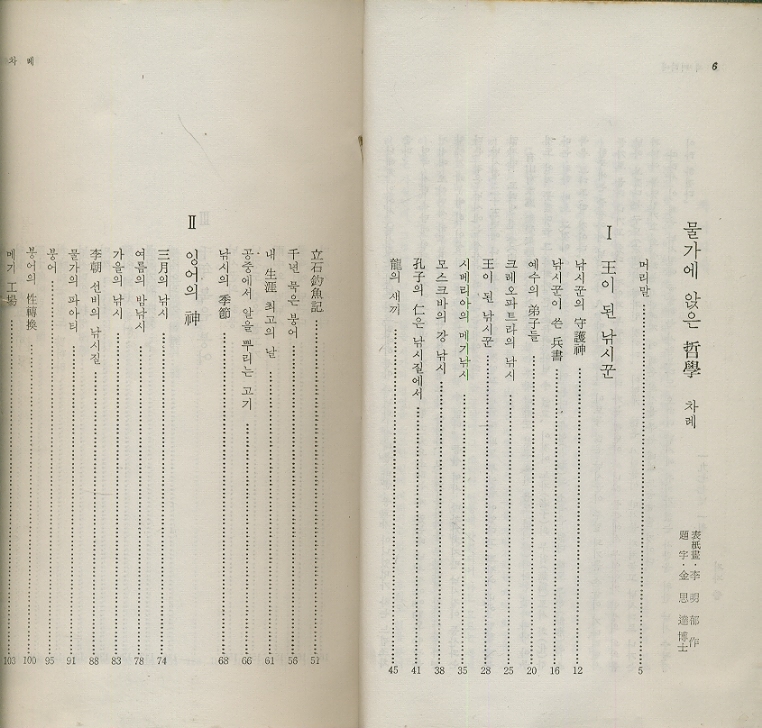 6
물가에 앉은 哲學 차례
表紙畫·李明郁作
題字·金思達博士
머리말 5
Ⅰ 王이 된 낚시꾼
낚시꾼의 守護神 12
낚시꾼이 쓴 兵書 16
예수의 弟子들 20
크레오파트라의 낚시 25
王이 된 낚시꾼 28
시베리아의 메기낚시 35
모스크바의 강 낚시 38
孔子의 仁은 낚시질에서 41
龍의 새끼 45
차 례
立石釣魚記 51
千년 묵은 붕어 56
내 生涯 최고의 날 61
공중에서 알을 뿌리는 고기 66
낚시의 季節 68
Ⅱ 잉어의 神
三月의 낚시 74
여름의 밤낚시 78
가을의 낚시 83
李朝 선비의 낚시질 88
물가의 파아티 91
붕어 95
붕어의 性轉換 100
메기 工場 103